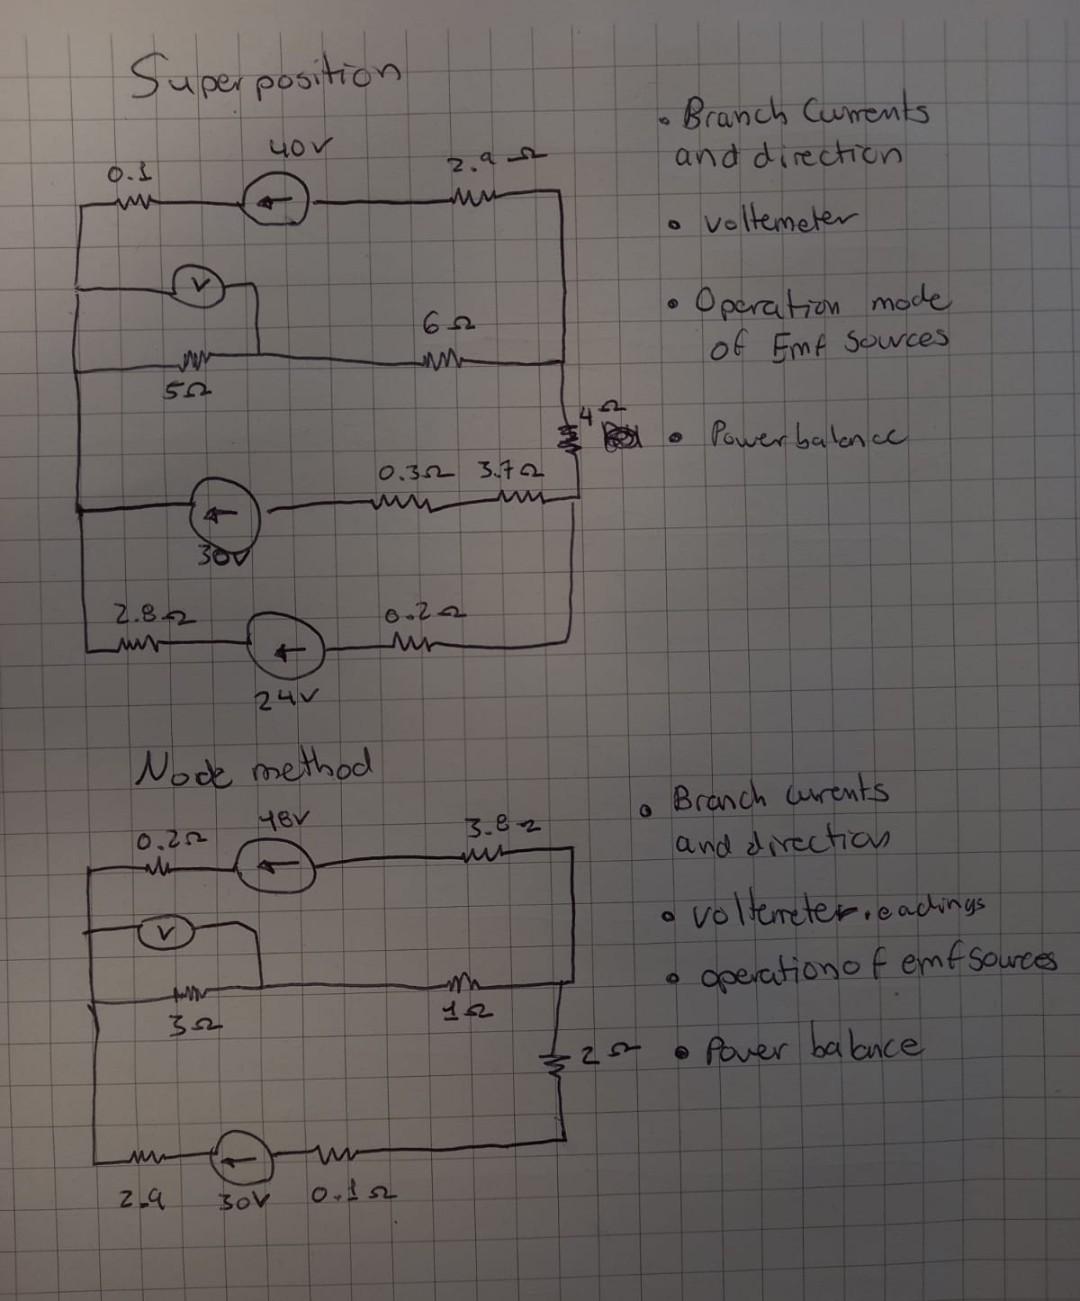 Superposition
0.1
40V
2.9 Ω
V
6Ω
5Ω
4Ω
0.3Ω 3.7Ω
30V
2.8Ω
0.2Ω
24V
• Branch Currents
and direction
• voltemeter
• Operation mode
of Emf Sources
• Power balence
Node method
0.2Ω
48V
3.8Ω
V
3Ω
1Ω
2Ω
2.9
30V
0.1Ω
• Branch currents
and direction
• voltemeter readings
• operation of emf sources
• Power balance